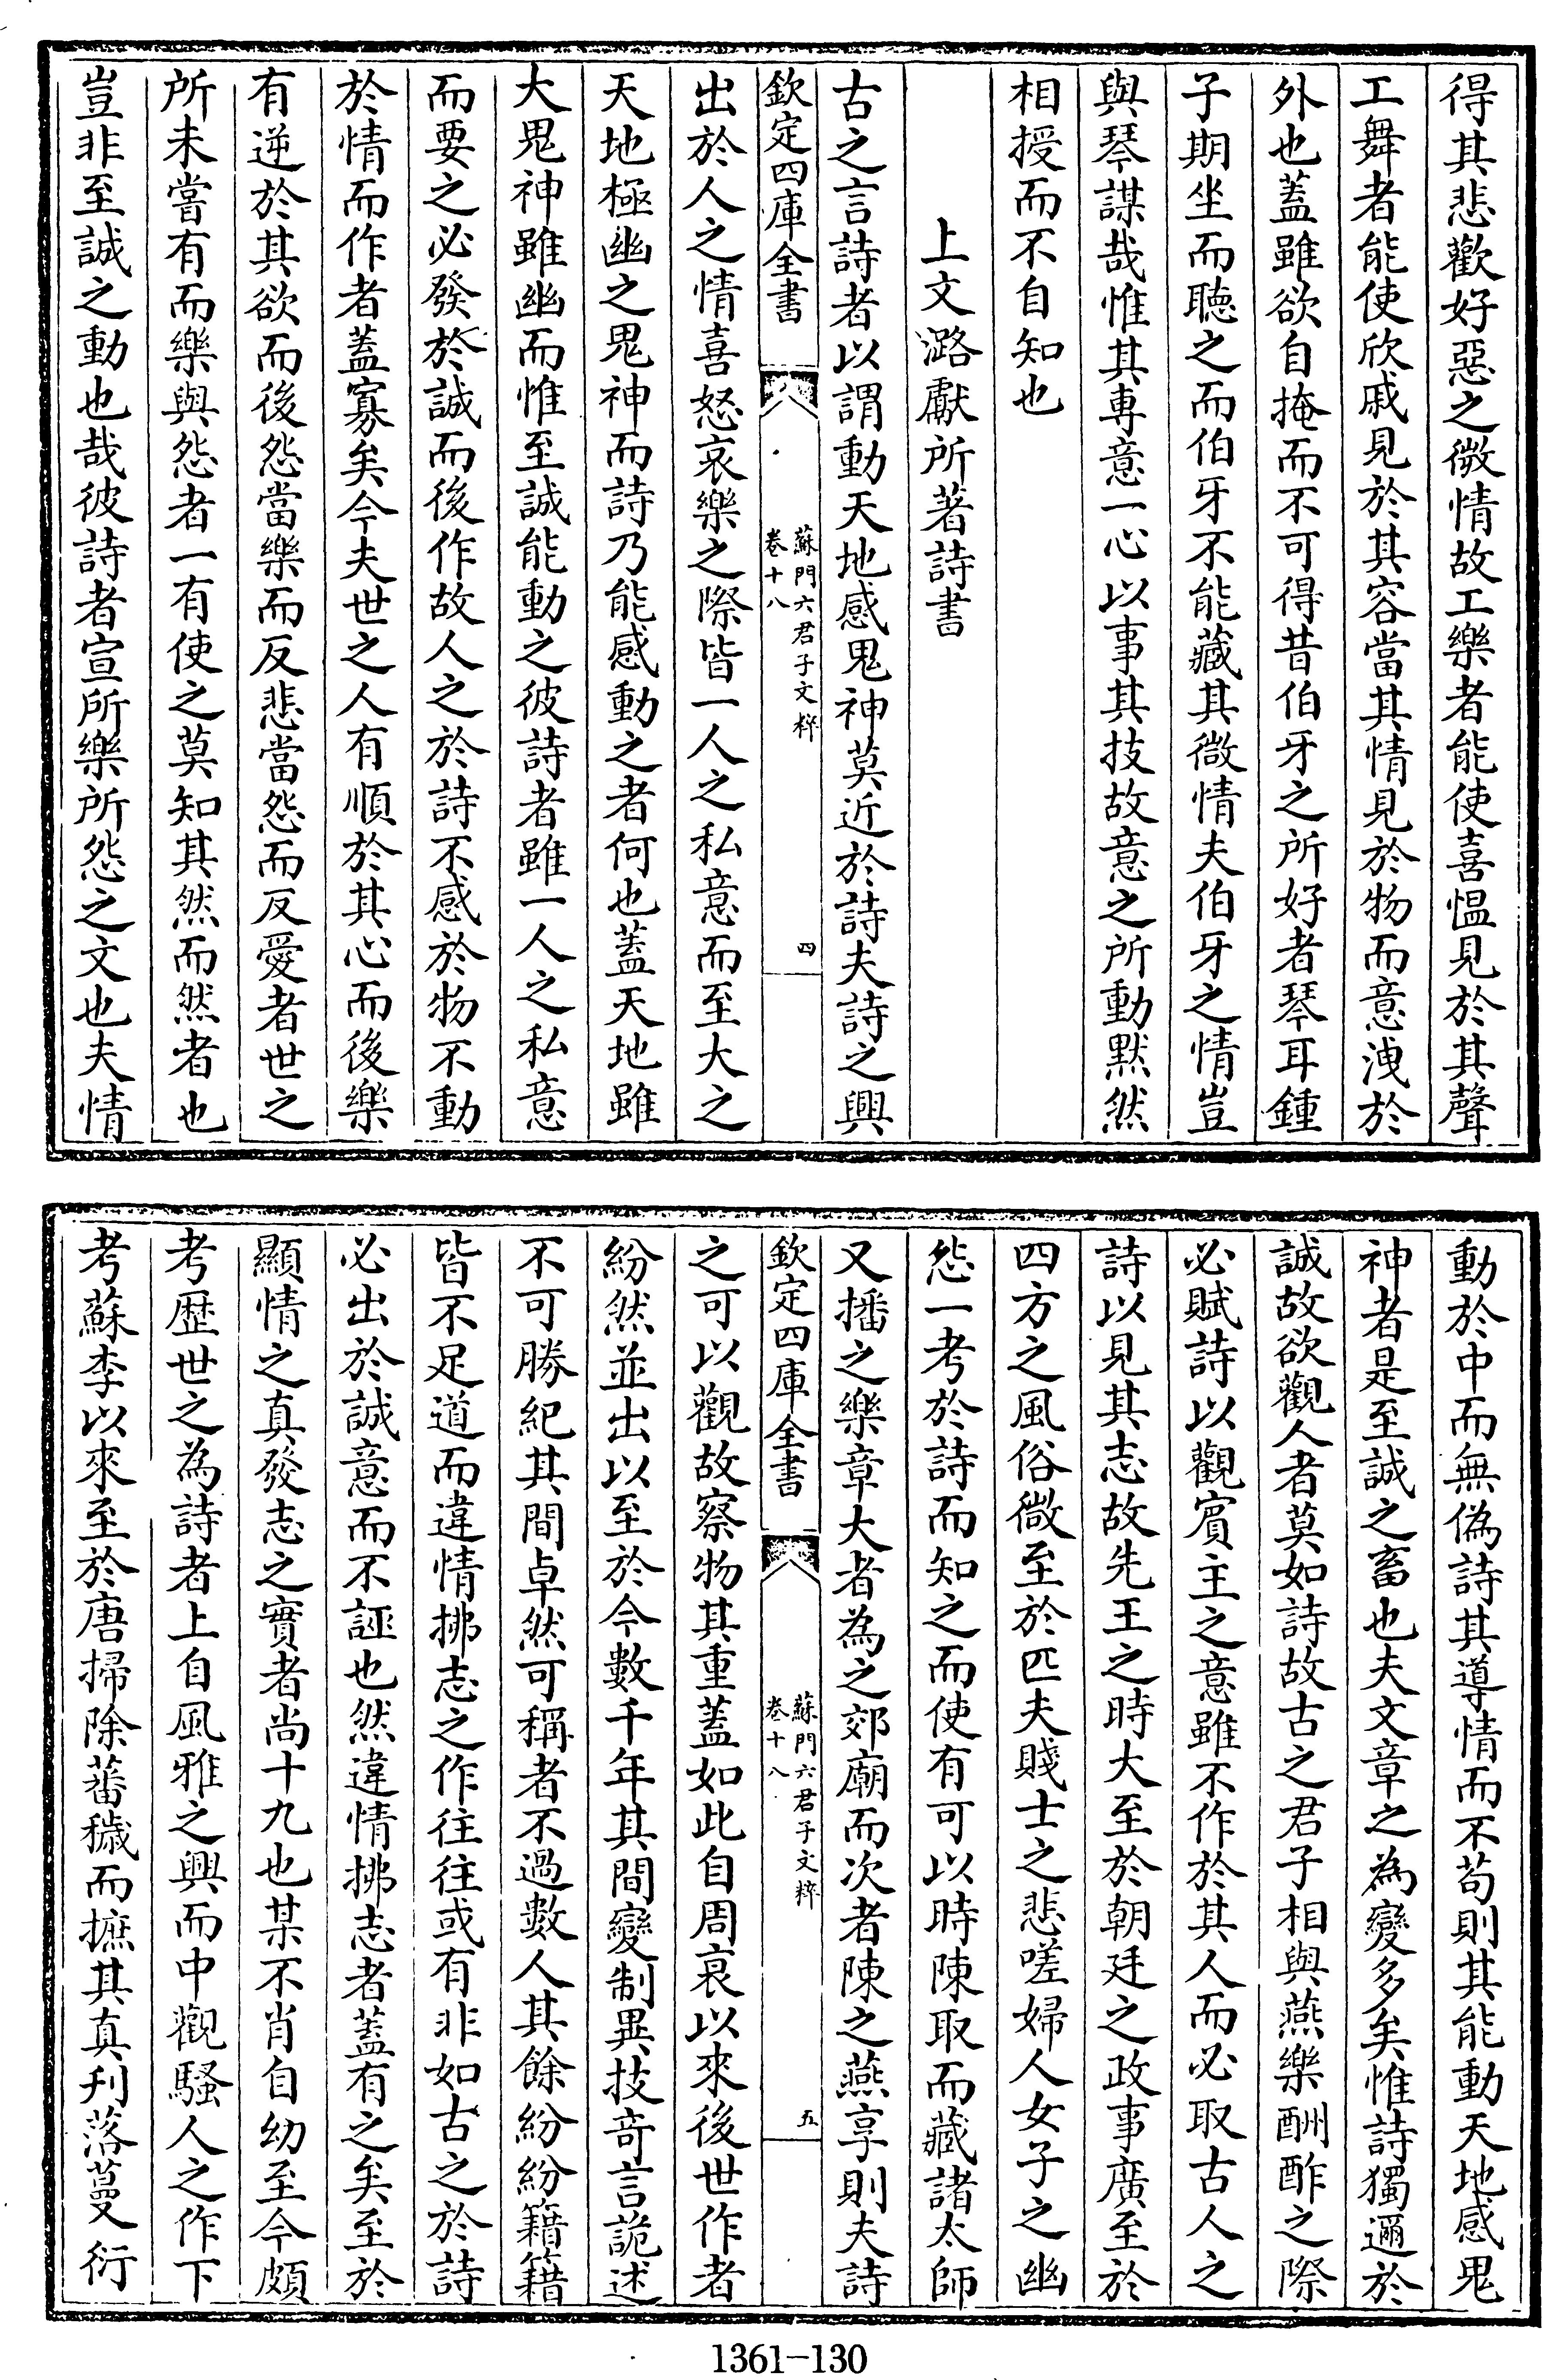 得其悲歡好惡之微情故工樂者能使喜愠見於其聲
工舞者能使欣戚見於其容當其情見於物而意洩於
外也蓋雖欲自掩而不可得昔伯牙之所好者琴耳鍾
子期坐而聽之而伯牙不能藏其微情夫伯牙之情豈
與琴謀哉惟其専意一心以事其技故意之所動黙然
相授而不自知也
上文潞獻所著詩書
古之言詩者以謂動天地感鬼神莫近於詩夫詩之興
欽定四庫全書
蘇門六君子文粹
卷十八
四
出於人之情喜怒哀樂之際皆一人之私意而至大之
天地極幽之鬼神而詩乃能感動之者何也蓋天地雖
大鬼神雖幽而惟至誠能動之彼詩者雖一人之私意
而要之必發於誠而後作故人之於詩不感於物不動
於情而作者蓋寡矣今夫世之人有順於其心而後樂
有逆於其欲而後怨當樂而反悲當怨而反愛者世之
所未嘗有而樂與怨者一有使之莫知其然而然者也
豈非至誠之動也哉彼詩者宣所樂所怨之文也夫情
動於中而無偽詩其導情而不茍則其能動天地感鬼
神者是至誠之畜也夫文章之為變多矣惟詩獨邇於
誠故欲觀人者莫如詩故古之君子相與燕樂酬酢之際
必賦詩以觀賓主之意雖不作於其人而必取古人之
詩以見其志故先王之時大至於朝廷之政事廣至於
四方之風俗微至於匹夫賤士之悲嗟婦人女子之幽
怨一考於詩而知之而使有可以時陳取而藏諸太師
又播之樂章大者為之郊廟而次者陳之燕享則夫詩
欽定四庫全書
蘇門六君子文粹
卷十八
五
之可以觀故察物其重蓋如此自周衰以來後世作者
紛然並出以至於今數千年其間變制異技奇言詭述
不可勝紀其間卓然可稱者不過數人其餘紛紛籍籍
皆不足道而違情拂志之作往往或有非如古之於詩
必出於誠意而不誣也然違情拂志者蓋有之矣至於
顯情之真發志之實者尚十九也某不肖自幼至今頗
考歴世之為詩者上自風雅之興而中觀騷人之作下
考蘇李以來至於唐掃除蕃穢而摭其真刋落蔓衍
1361-130